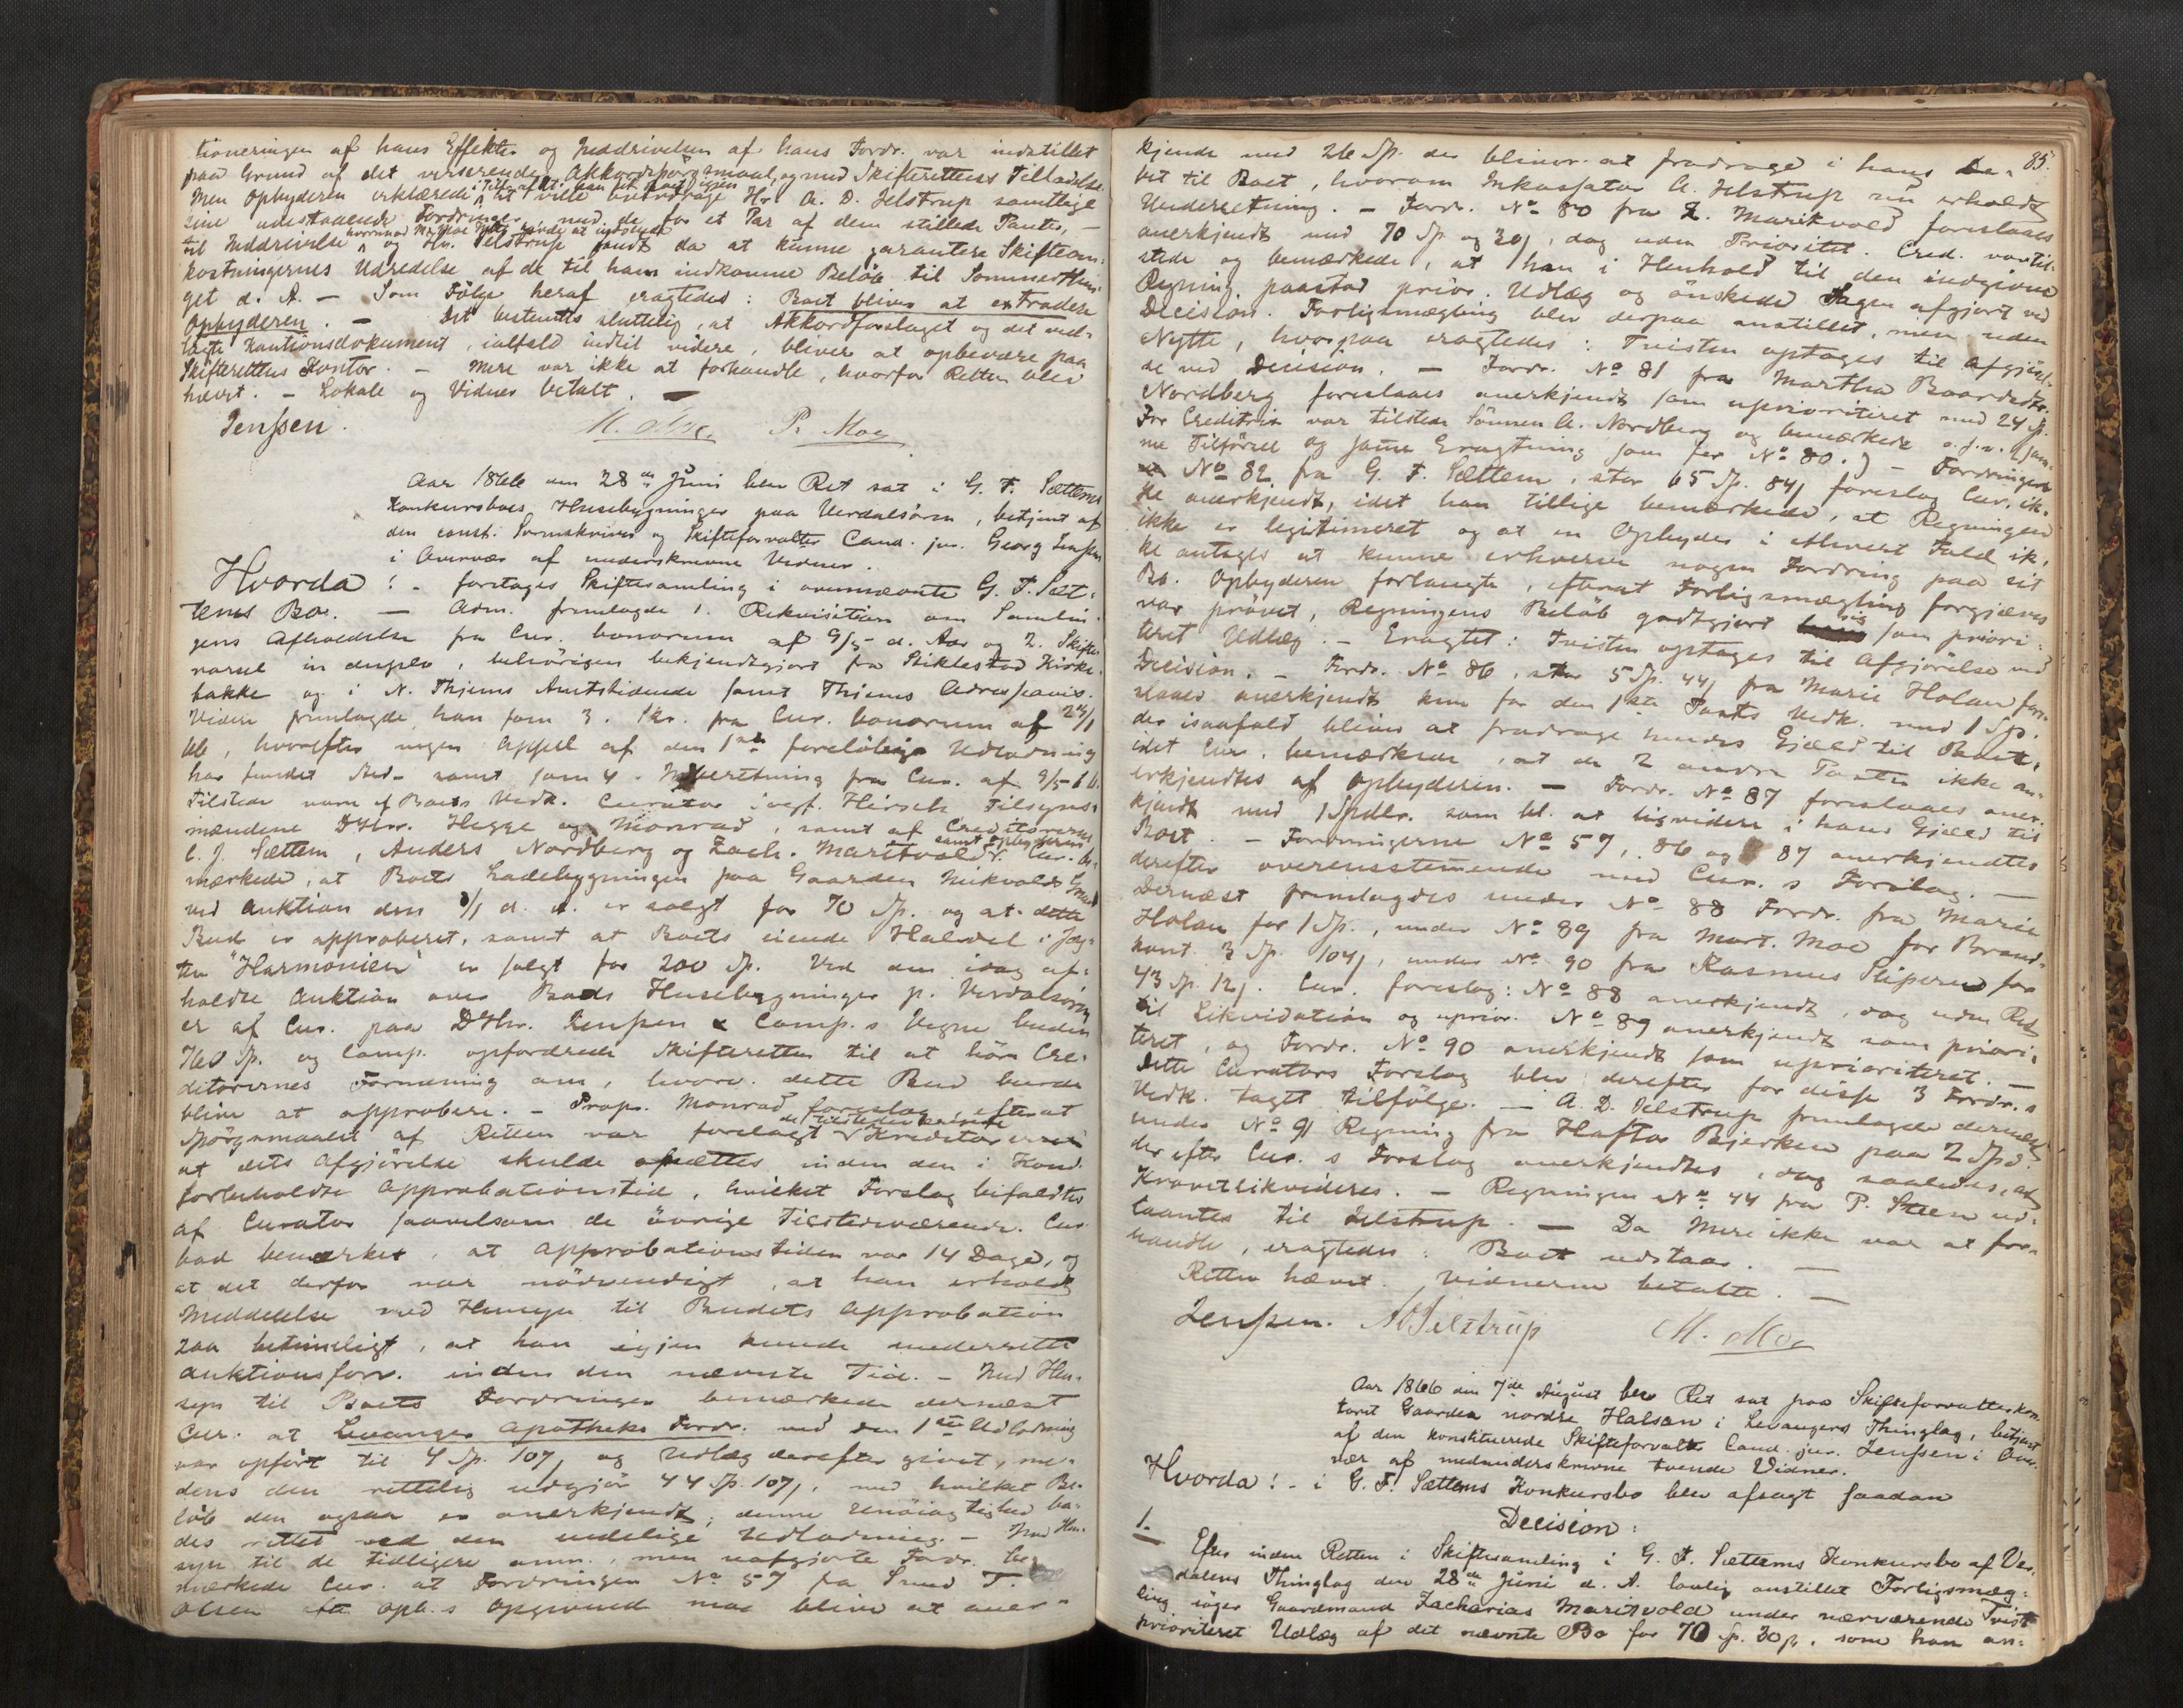 tioneringen af hans Effekter og Inddrivelsen af hans Fordr. var indstillet
paa Grund af det verserende Akkordspørgsmaal, og med Skifterettens Tilladelse.
Men Opbyderen erklærede i Tilf. af at han fik Boet igjen at ville overdrage Hr. A. D. Jelstrup samtlige
sine udestaaende Fordringer med de for et Par af dem stillede Panter, —
til Inddrivelse og Hr. Jelstrup fandt da at kunne garantere Skifteom-
kostningernes Udredelse af de til ham indkomne Beløb til Sommerthin-
get d. A. — Som Følge heraf eragtedes: Boet bliver at extradere
Opbyderen. — Det bestemtes sluttelig, at Akkordforslaget og det ved-
lagte Kautionsdokument, ialfald indtil videre, bliver at opbevare paa
Skifterettens Kontor. — Mere var ikke at forhandle, hvorfor Retten blev
hævet. — Lokale og Vidner betalt.
Jenssen. M. Moe. P. Moe
Aar 1866 den 28de Juni blev Ret sat i G. F. Sættems
Konkursboes Husebygninger paa Verdalsøren, betjent af
den const. Sorenskriver og Skifteforvalter Cand. jur. Georg Jenssen
i Overvær af underskrevne Vidner.
Hvorda! - foretages Skiftesamling i ovennævnte G. F. Sæt-
tems Bo. — Adm. fremlagde 1. Rekvisition om Samlin-
gens Afholdelse fra Cur. bonorum af 9/5 d. Aar og 2. Skifte-
varsel in duplo, behørigen bekjendtgjort fra Stiklestad Kirke-
bakke og i N. Thjems Amtstidende samt Thjems Adresseavis.
Videre fremlagde han som 3. Skr. fra Cur. bonorum af 23/1
66, hvorefter ingen Appel af den 1ste foreløbige Udlodning
har fundet Sted - samt som 4. Indberetning fra Cur. af 9/5 66.
Tilstede vare af Boets Vedk. Curator sagf. Hirsch Tilsyns-
mændene DHrr. Hegge og Monrad, samt af Creditorerne
C. J. Sættem, Anders Nordberg og Zach. Maritvold samt Opbyderen. Cur. be-
mærkede, at Boets Ladebygningen paa Gaarden Mikvolds Grund
ved Auktion den 3/1 d. A. er solgt for 70 Sp. og at dette
Bud er approberet, samt at Boets eiende Halvdel i Jag-
ten "Harmonien" er solgt for 200 Sp. Ved den idag af-
holdte Auktion over Boets Husebygninger p. Verdalsøren
er af Cur. paa DHrr. Jenssen & Comp.s Vegne buden
760 Sp. og Comp. opfordrede Skifteretten til at høre Cre-
ditorernes Formening om, hvorv. dette Bud burde
blive at approbere. — Prop. Monrad foreslog, efterat
Spørgsmaalet af Retten var forelagt de tilstedeværende Kreditorer
at dets Afgjørelse skulde opsættes inden den i Kond.
forbeholdte Approbationstid, hvilket Forslag bifaldtes
af Curator saavelsom de øvrige Tilstedeværende. Cur
bad bemærket, at Approbationstiden var 14 Dage, og
at det derfor var nødvendigt, at han erholdt
Meddelelse med Hensyn til Budets Approbation
saa betimeligt, at han igjen kunde underrette
Auktionsforv. inden den nævnte Tid. — Med Hen-
syn til Boets Fordringer bemærkede dernæst
Cur. at Levanger Apotheks Fordr. ved den 1ste Udlodning
var opført til 4 Sp. 107 og Udlæg derefter givet, me-
dens den rettelig udgjør 44 Sp. 107, med hvilket Be-
løb den ogsaa er anerkjendt; denne Unøiagtighed ba-
des rettet ved den endelige Udlodning. — Med Hen-
syn til de tidligere anm., men uafgjorte Fordr. be-
mærkede Cur. at Fordringen No 57 fra Smed T.
Olsen efter Opb.s Opgivende maa blive at aner-
85.
kjende med 26 Sp. der bliver at fradrage i hans De-
bet til Boet, hvorom Inkassator A. Jelstrup nu erholdt
Underretning. — Fordr. No 80 fra Z. Maritvold foreslaaes
anerkjendt med 70 Sp og 30 s, dog uden Prioritet. Cred. var til-
stede og bemærkede, at han i Henhold til den indgivne
Regning paastod prior. Udlæg og ønskede Sagen afgjort ved
Decision. Forligsmægling blev derpaa anstillet, men uden
Nytte, hvorpaa eragtedes: Tvisten optages til Afgjørel-
se ved Decision. — Fordr. No 81 fra Martha Baardsdtr.
Nordberg foreslaaes anerkjendt som uprioriteret med 24 Sp.
For Creditrix var tilstede Sønnen A. Nordberg og bemærkede o.s.v. (sam-
me Tilførsel og samme Eragtning som for No 80.) — Fordringen
No 82 fra G. F. Sættem, stor 65 Sp. 84 s foreslog Cur. ik-
ke anerkjendt, idet han tillige bemærkede, at Regningen
ikke er legitimeret og at en Opbyder i ethvert Fald ik-
ke antages at kunne erhverve nogen Fordring paa sit
Bo. Opbyderen forlangte, efterat Forligsmægling forgjæves
var prøvet, Regningens Beløb godtgjort sig som priori-
teret Udlæg. — Eragtet: Tvisten optages til Afgjørelse ved
Decision. — Fordr. No 86, stor 5 Sp. 44 s fra Marie Holan fore-
slaaes anerkjendt kun for den 1ste Posts Vedk. med 1 Sp.
der isaafald bliver at fradrage hendes Gjæld til Boet,
idet Cur. bemærkede, at de 2 andre Poster ikke an-
erkjendtes af Opbyderen. — Fordr. No 87 foreslaaes aner-
kjendt med 1 Spdlr. som bl. at likvidere i hans Gjæld til
Boet. — Fordringerne No 57, 86 og 87 anerkjendtes
derefter overensstemmende med Cur.s Forslag. —
Dernæst fremlagdes under No 88 Fordr. fra Marie
Holan for 1 Sp., under No 89 fra Mort. Moe for Brand-
kont. 3 Sp. 104 s, under No 90 fra Rasmus Slipern for
43 Sp. 12 s. Cur. foreslog: No 88 anerkjendt, dog uden Ret
til Likvidation og uprior. No 89 anerkjendt som priori-
teret, og Fordr. No 90 anerkjendt som uprioriteret. —
Dette Curators Forslag blev derefter for disse 3 Fordr.s
Vedk. tagtt tilfølge. — A. D. Jelstrup fremlagde dernæst
under No 91 Regning fra Haftor Bjerken paa 2 Spd.
der efter Cur.s Forslag anerkjendtes, dog saaledes, at
Kravet likvideres. — Regningen No 44 fra P. Steen ud-
laantes til Jelstrup. — Da Mere ikke var at for-
handle, eragtedes: Boet udstaar. —
Retten hævet. Vidnerne betalte. —
Jenssen. A Jelstrup M. Moe
Aar 1866 den 7de August blev Ret sat paa Skifteforvalterkon-
toret Gaarden nordre Halsan i Levangers Thinglag, betjent
af den konstituerede Skifteforvalter Cand. jur. Jenssen i Over-
vær af medunderskrevne tvende Vidner.
Hvorda! - i G. F. Sættems Konkursbo blev afsagt saadan
Decision:
1. Efter inden Retten i Skiftesamling i G. F. Sættems Konkursbo af Ver-
dalens Thinglag den 28de Juni d. A. lovlig anstillet Forligsmæg-
ling søger Gaardmand Zacharias Maritvold under nærværende Tvist
prioriteret Udlæg af det nævnte Bo for 70 Sp. 30 s, som han an-